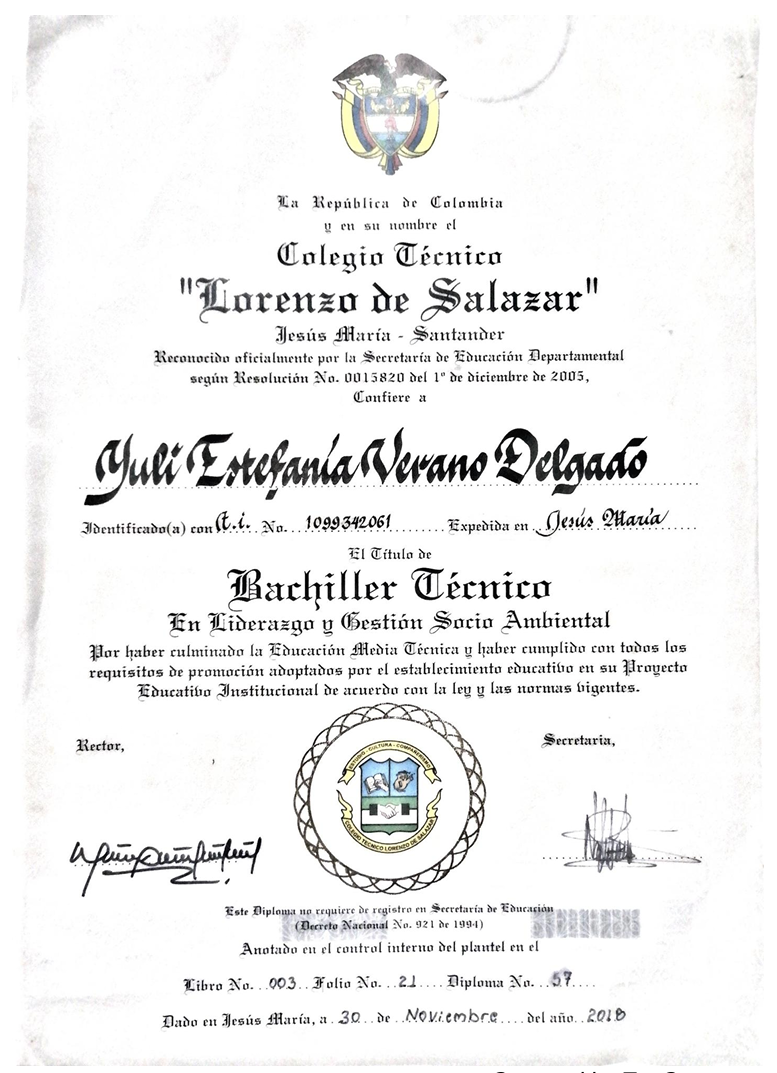 La República de Colombia
y en su nombre el
Colegio Técnico
"Lorenzo de Salazar"
Jesús María - Santander
Reconocido oficialmente por la Secretaría de Educación Departamental
según Resolución No. 0015820 del 1º de diciembre de 2005,
Confiere a
Yuli Estefanía Verano Delgado
Identificado(a) con t.i. No. 1099342061 Expedida en Jesús María
El Título de
Bachiller Técnico
En Liderazgo y Gestión Socio Ambiental
Por haber culminado la Educación Media Técnica y haber cumplido con todos los
requisitos de promoción adoptados por el establecimiento educativo en su Proyecto
Educativo Institucional de acuerdo con la ley y las normas vigentes.
Rector,
Secretaria,
ESTUDIO - CULTURA - COMPAÑERISMO
COLEGIO TECNICO LORENZO DE SALAZAR
Este Diploma no requiere de registro en Secretaría de Educación
(Decreto Nacional No. 921 de 1994)
Anotado en el control interno del plantel en el
Libro No. 003 Folio No. 21 Diploma No. 57
Dado en Jesús María, a 30 de Noviembre del año 2018